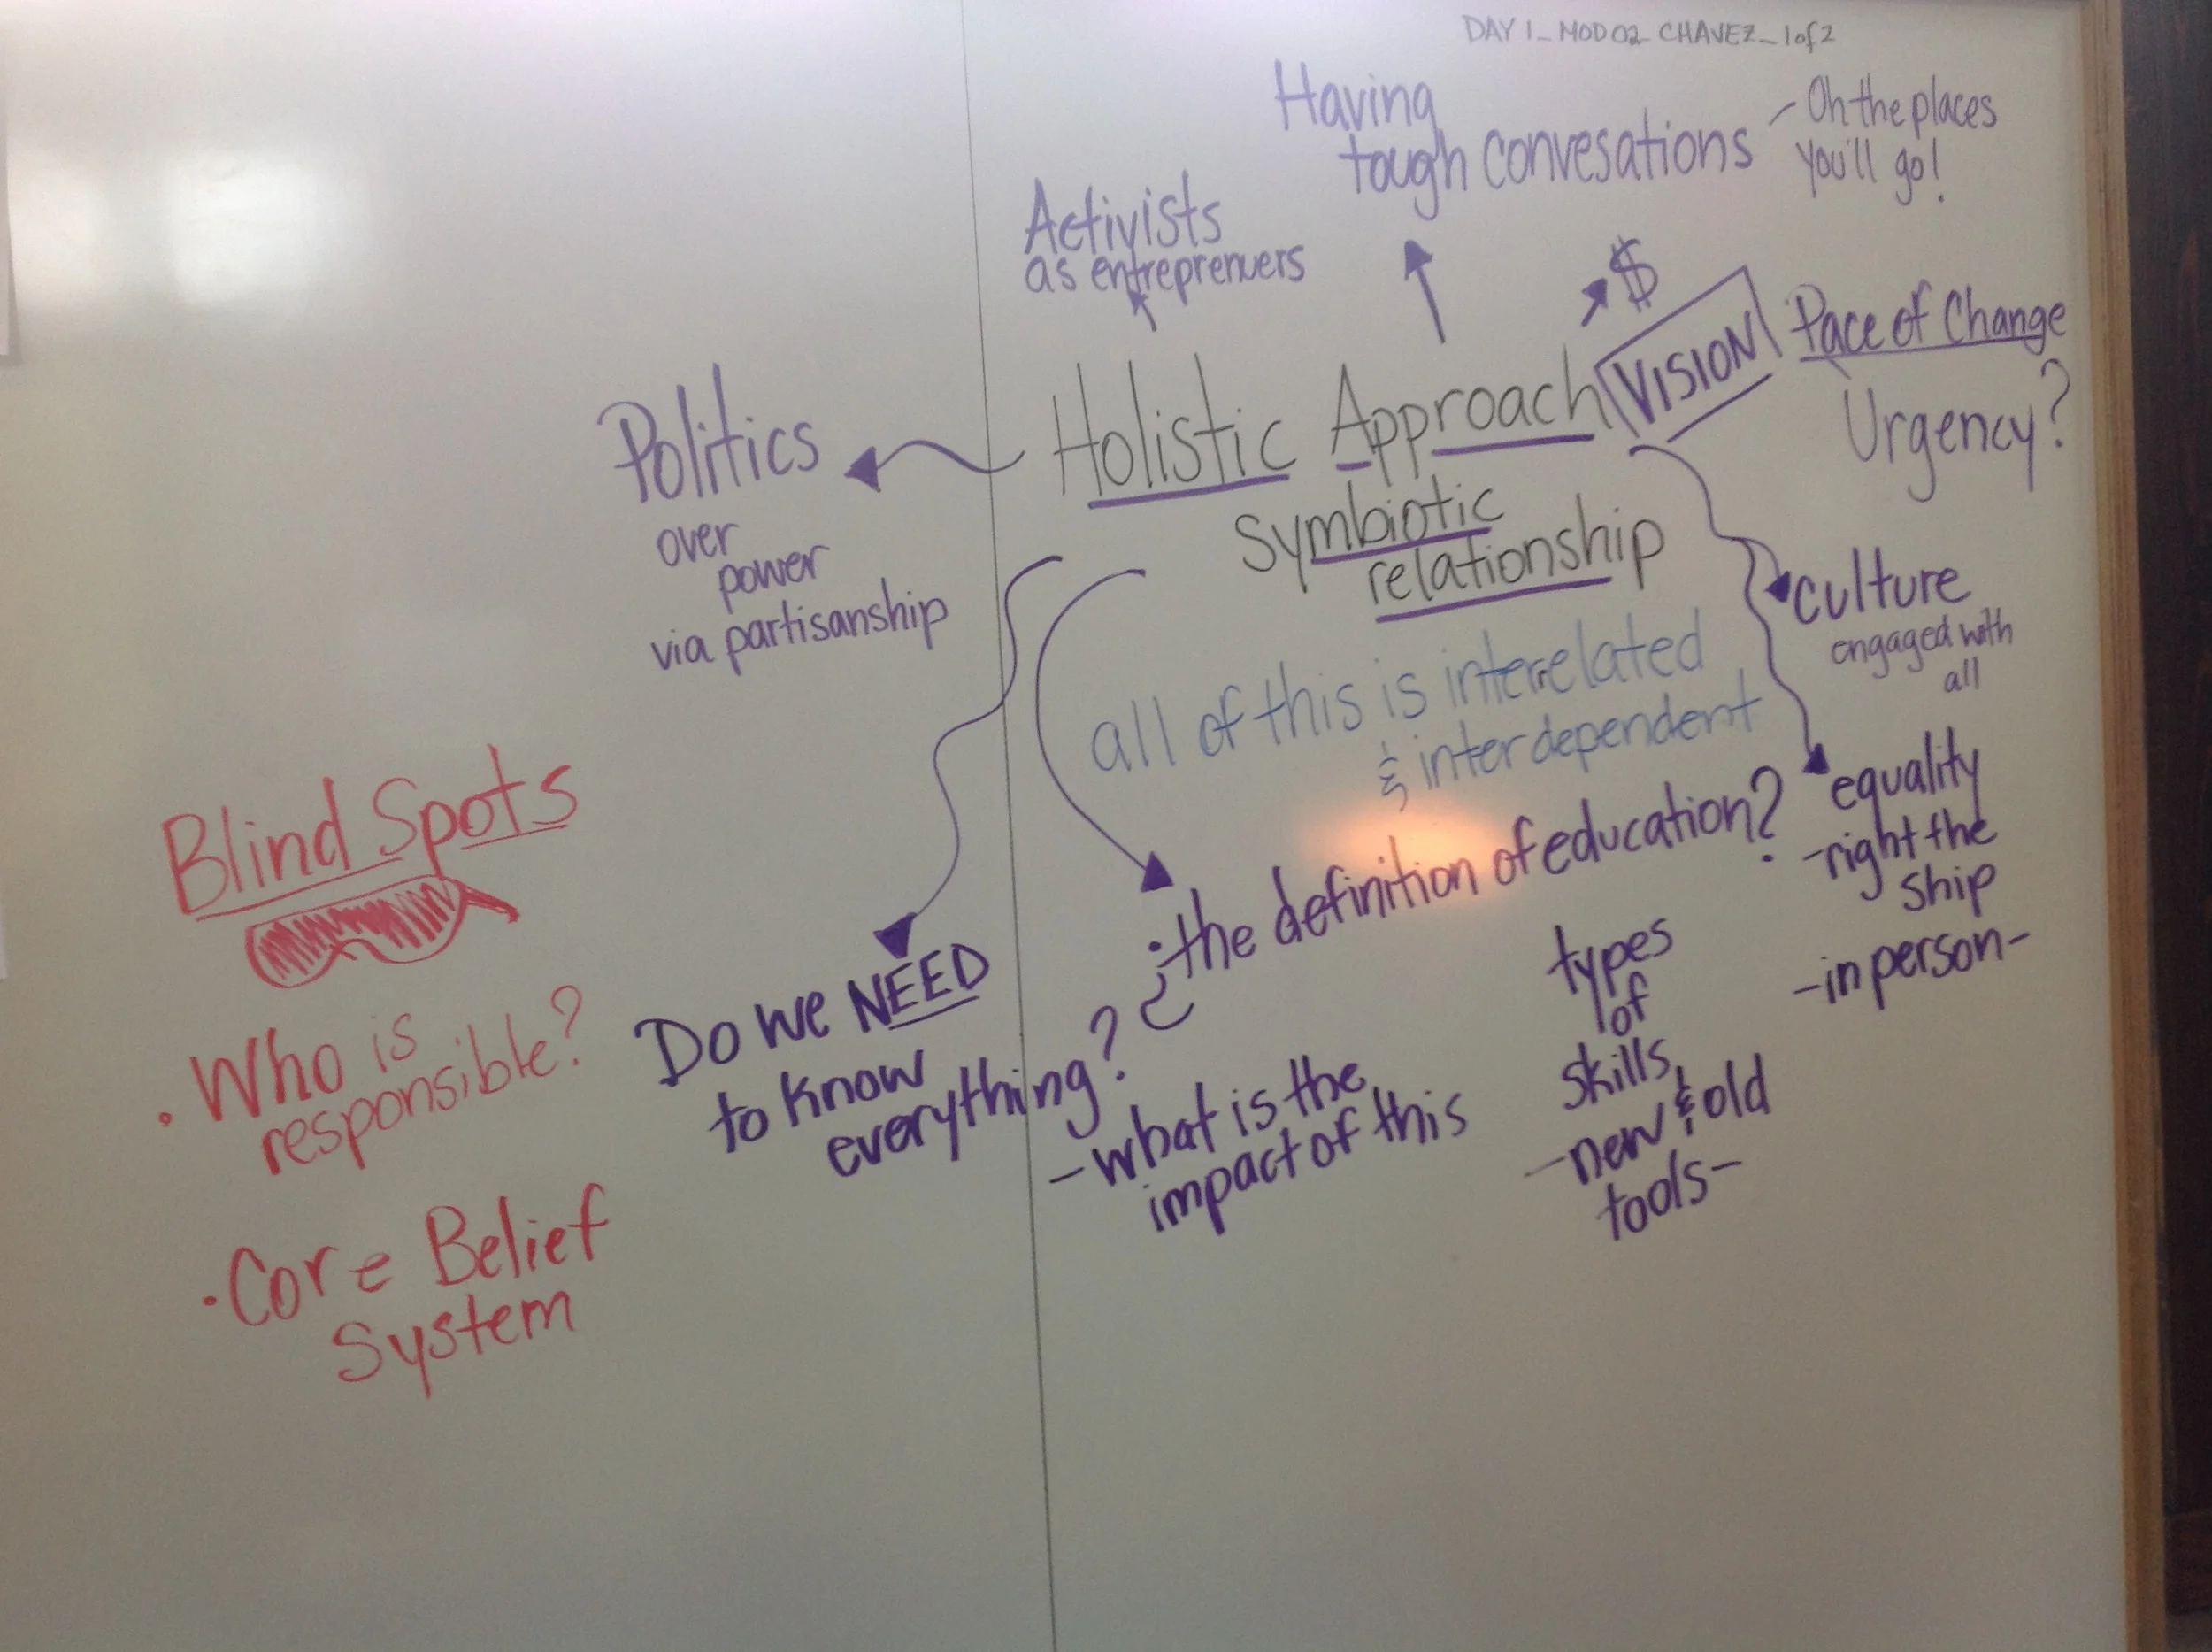 DAY 1_MOD02_CHAVEZ_1of2
Having
tough convesations
- Oh the places
you'll go!
Activists
as entreprenuers
$
VISION
Pace of Change
Urgency?
Politics
over
power
via partisanship
Holistic Approach
Symbiotic
relationship
all of this is interrelated
& interdependent
culture
engaged with
all
equality
-right the
ship
-in person-
¿the definition of education?
types
of
skills
-new & old
tools-
Do we NEED
to know
everything?
-what is the
impact of this
Blind Spots
. Who is
responsible?
. Core Belief
System